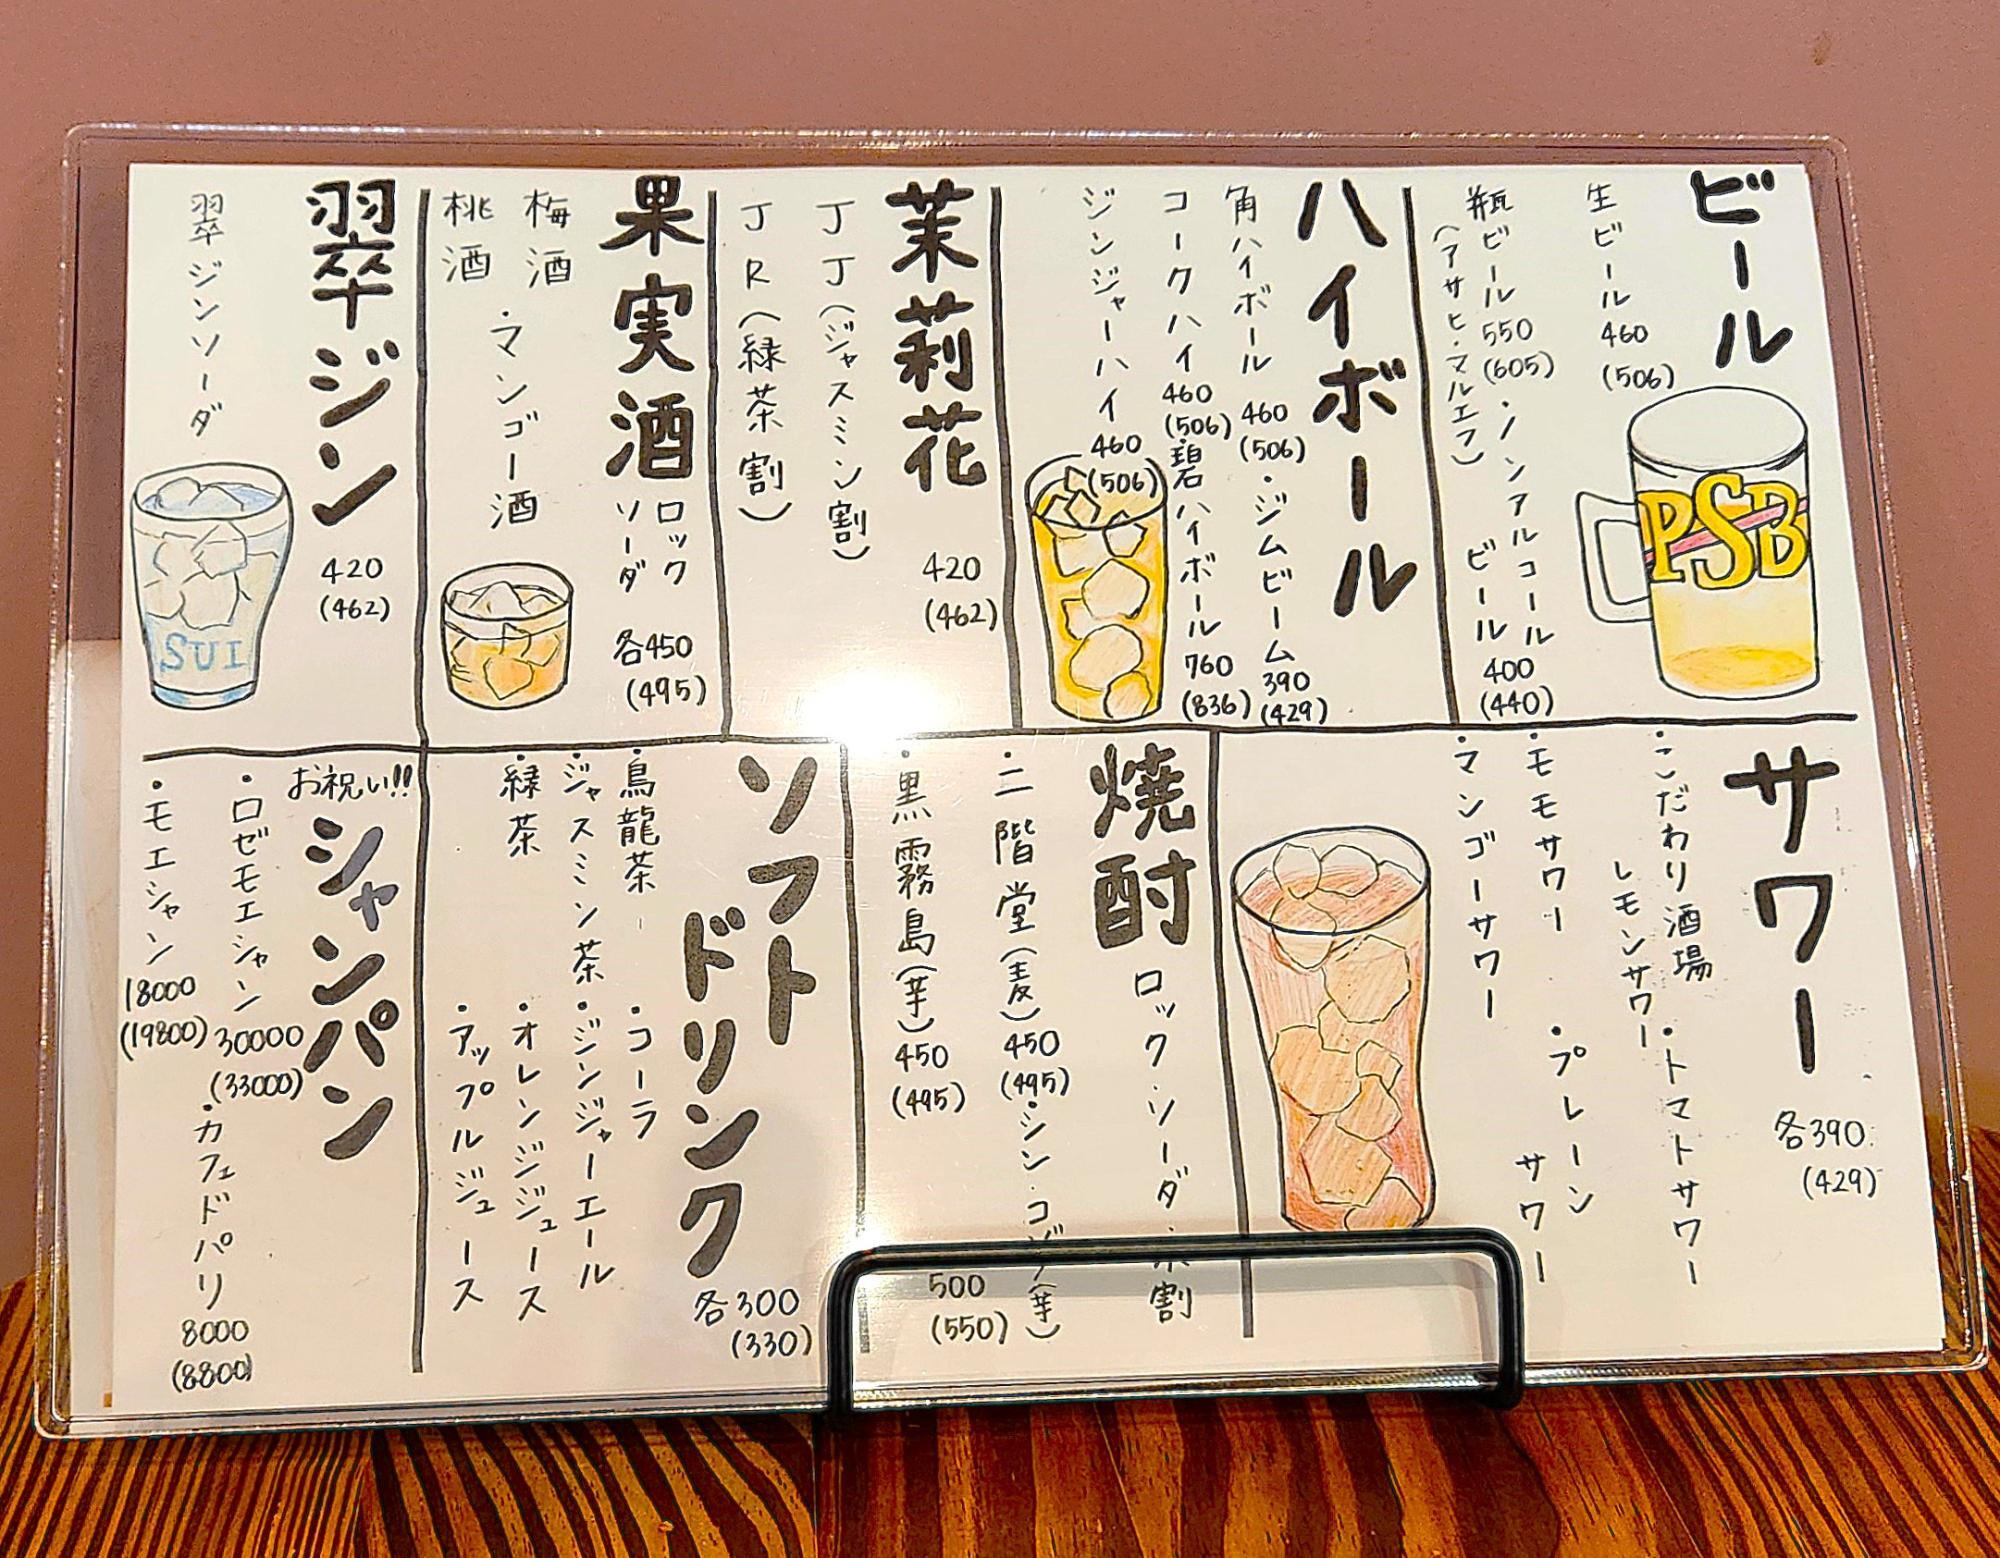 ビール
生ビール 460
(506)
瓶ビール 550
(605)
(アサヒ・マルエフ)
・ノンアルコール
ビール 400
(440)
PSB
ハイボール
角ハイボール 460
(506)
コークハイ 460
(506)
ジンジャーハイ 460
(506)
・ジムビーム 390
(429)
・碧ハイボール 760
(836)
茉莉花
420
(462)
JJ(ジャスミン割)
JR(緑茶割)
果実酒
ロック
ソーダ
各450
(495)
梅酒
桃酒
・マンゴー酒
翠ジン
420
(462)
翠ジンソーダ
SUI
サワー
各390
(429)
・こだわり酒場
レモンサワー
・トマトサワー
・モモサワー
・プレーン
サワー
・マンゴーサワー
焼酎
ロック・ソーダ・水割
・二階堂(麦) 450
(495)
・黒霧島(芋) 450
(495)
・シン・コ(芋)
500
(550)
ソフト
ドリンク
各300
(330)
・烏龍茶
・ジャスミン茶
・緑茶
・コーラ
・ジンジャーエール
・オレンジジュース
・アップルジュース
お祝い!!
シャンパン
・ロゼモエシャン 30000
(33000)
・モエシャン 18000
(19800)
・カフェドパリ 8000
(8800)